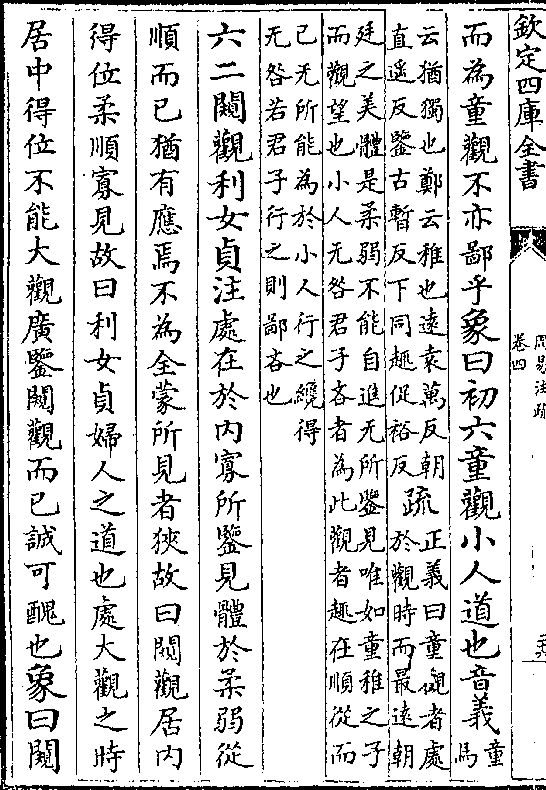 欽定四庫全書
周易注疏
卷四
而為童觀不亦鄙乎象曰初六童觀小人道也音義童馬
云猶獨也鄭云稚也遠袁萬反朝
直遥反鑒古暫反下同趣促裕反
疏
正義曰童觀者處
於觀時而最遠朝
廷之美體是柔弱不能自進无所鑒見唯如童稚之子
而觀望也小人无咎君子吝者為此觀者趣在順從而
已无所能為於小人行之纔得
无咎若君子行之則鄙吝也
六二闚觀利女貞注處在於内寡所鑒見體於柔弱從
順而已猶有應焉不為全蒙所見者狹故曰闚觀居内
得位柔順寡見故曰利女貞婦人之道也處大觀之時
居中得位不能大觀廣鑒闚觀而已誠可醜也象曰闚